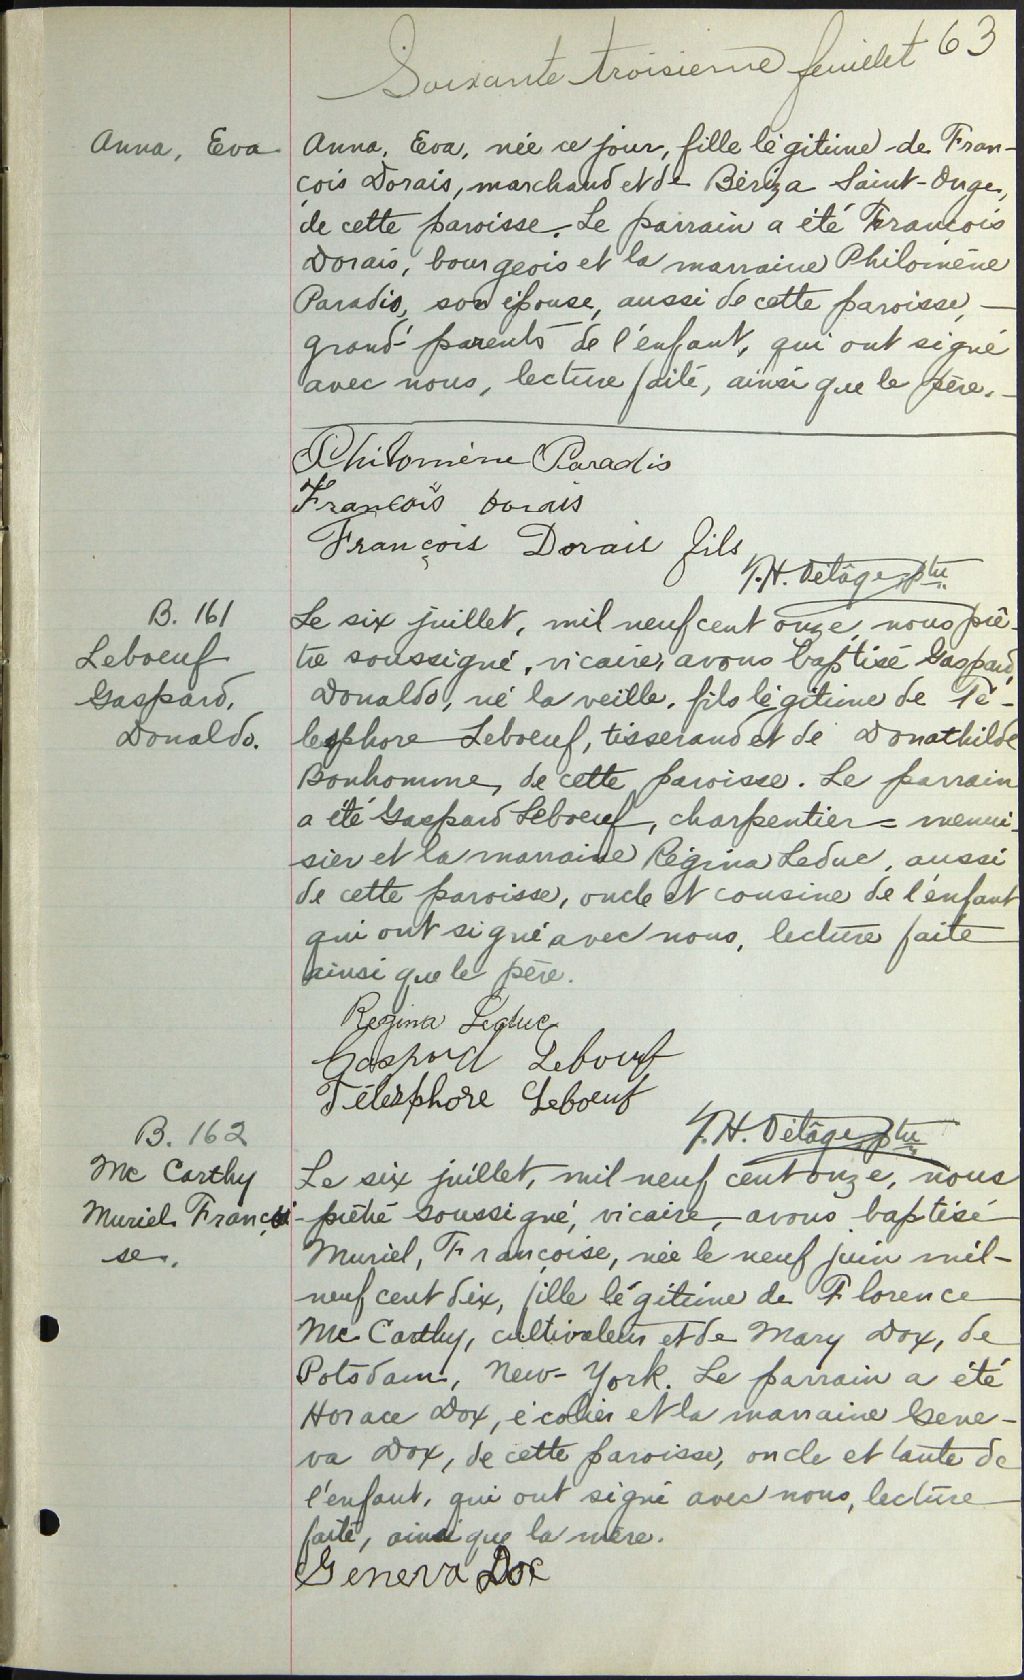 Soixante troisième feuillet 63
Anna, Eva
Anna, Eva, née ce jour, fille légitime de Fran-
çois Dorais, marchand et de Bériza Saint-Onge,
de cette paroisse. Le parrain a été François
Dorais, bourgeois et la marraine Philomène
Paradis, son épouse, aussi de cette paroisse,
grand-parents de l'enfant, qui ont signé
avec nous, lecture faite, ainsi que le père.
Philomène Paradis
François Dorais
François Dorais fils
J.H. Delâge, ptre
B. 161
Leboeuf
Gaspard,
Donaldo.
Le six juillet, mil neuf cent onze, nous prê-
tre soussigné, vicaire, avons baptisé Gaspard,
Donaldo, né la veille, fils légitime de Té-
lesphore Leboeuf, tisserand et de Donathilde
Bonhomme, de cette paroisse. Le parrain
a été Gaspard Leboeuf, charpentier=menui-
sier et la marraine Régina Leduc, aussi
de cette paroisse, oncle et cousine de l'enfant
qui ont signé avec nous, lecture faite
ainsi que le père.
Regina Leduc
Gaspard Leboeuf
Télésphore Leboeuf
J.H. Delâge, ptre
B. 162
Mc Carthy
Muriel Françoi-
se.
Le six juillet, mil neuf cent onze, nous
prêtre soussigné, vicaire, avons baptisé
Muriel, Françoise, née le neuf juin mil-
neuf cent dix, fille légitime de Florence
Mc Carthy, cultivateur et de Mary Dox, de
Potsdam, New-York. Le parrain a été
Horace Dox, écolier et la marraine Gene-
va Dox, de cette paroisse, oncle et tante de
l'enfant, qui ont signé avec nous, lecture
faite, ainsi que la mère.
Geneva Dox